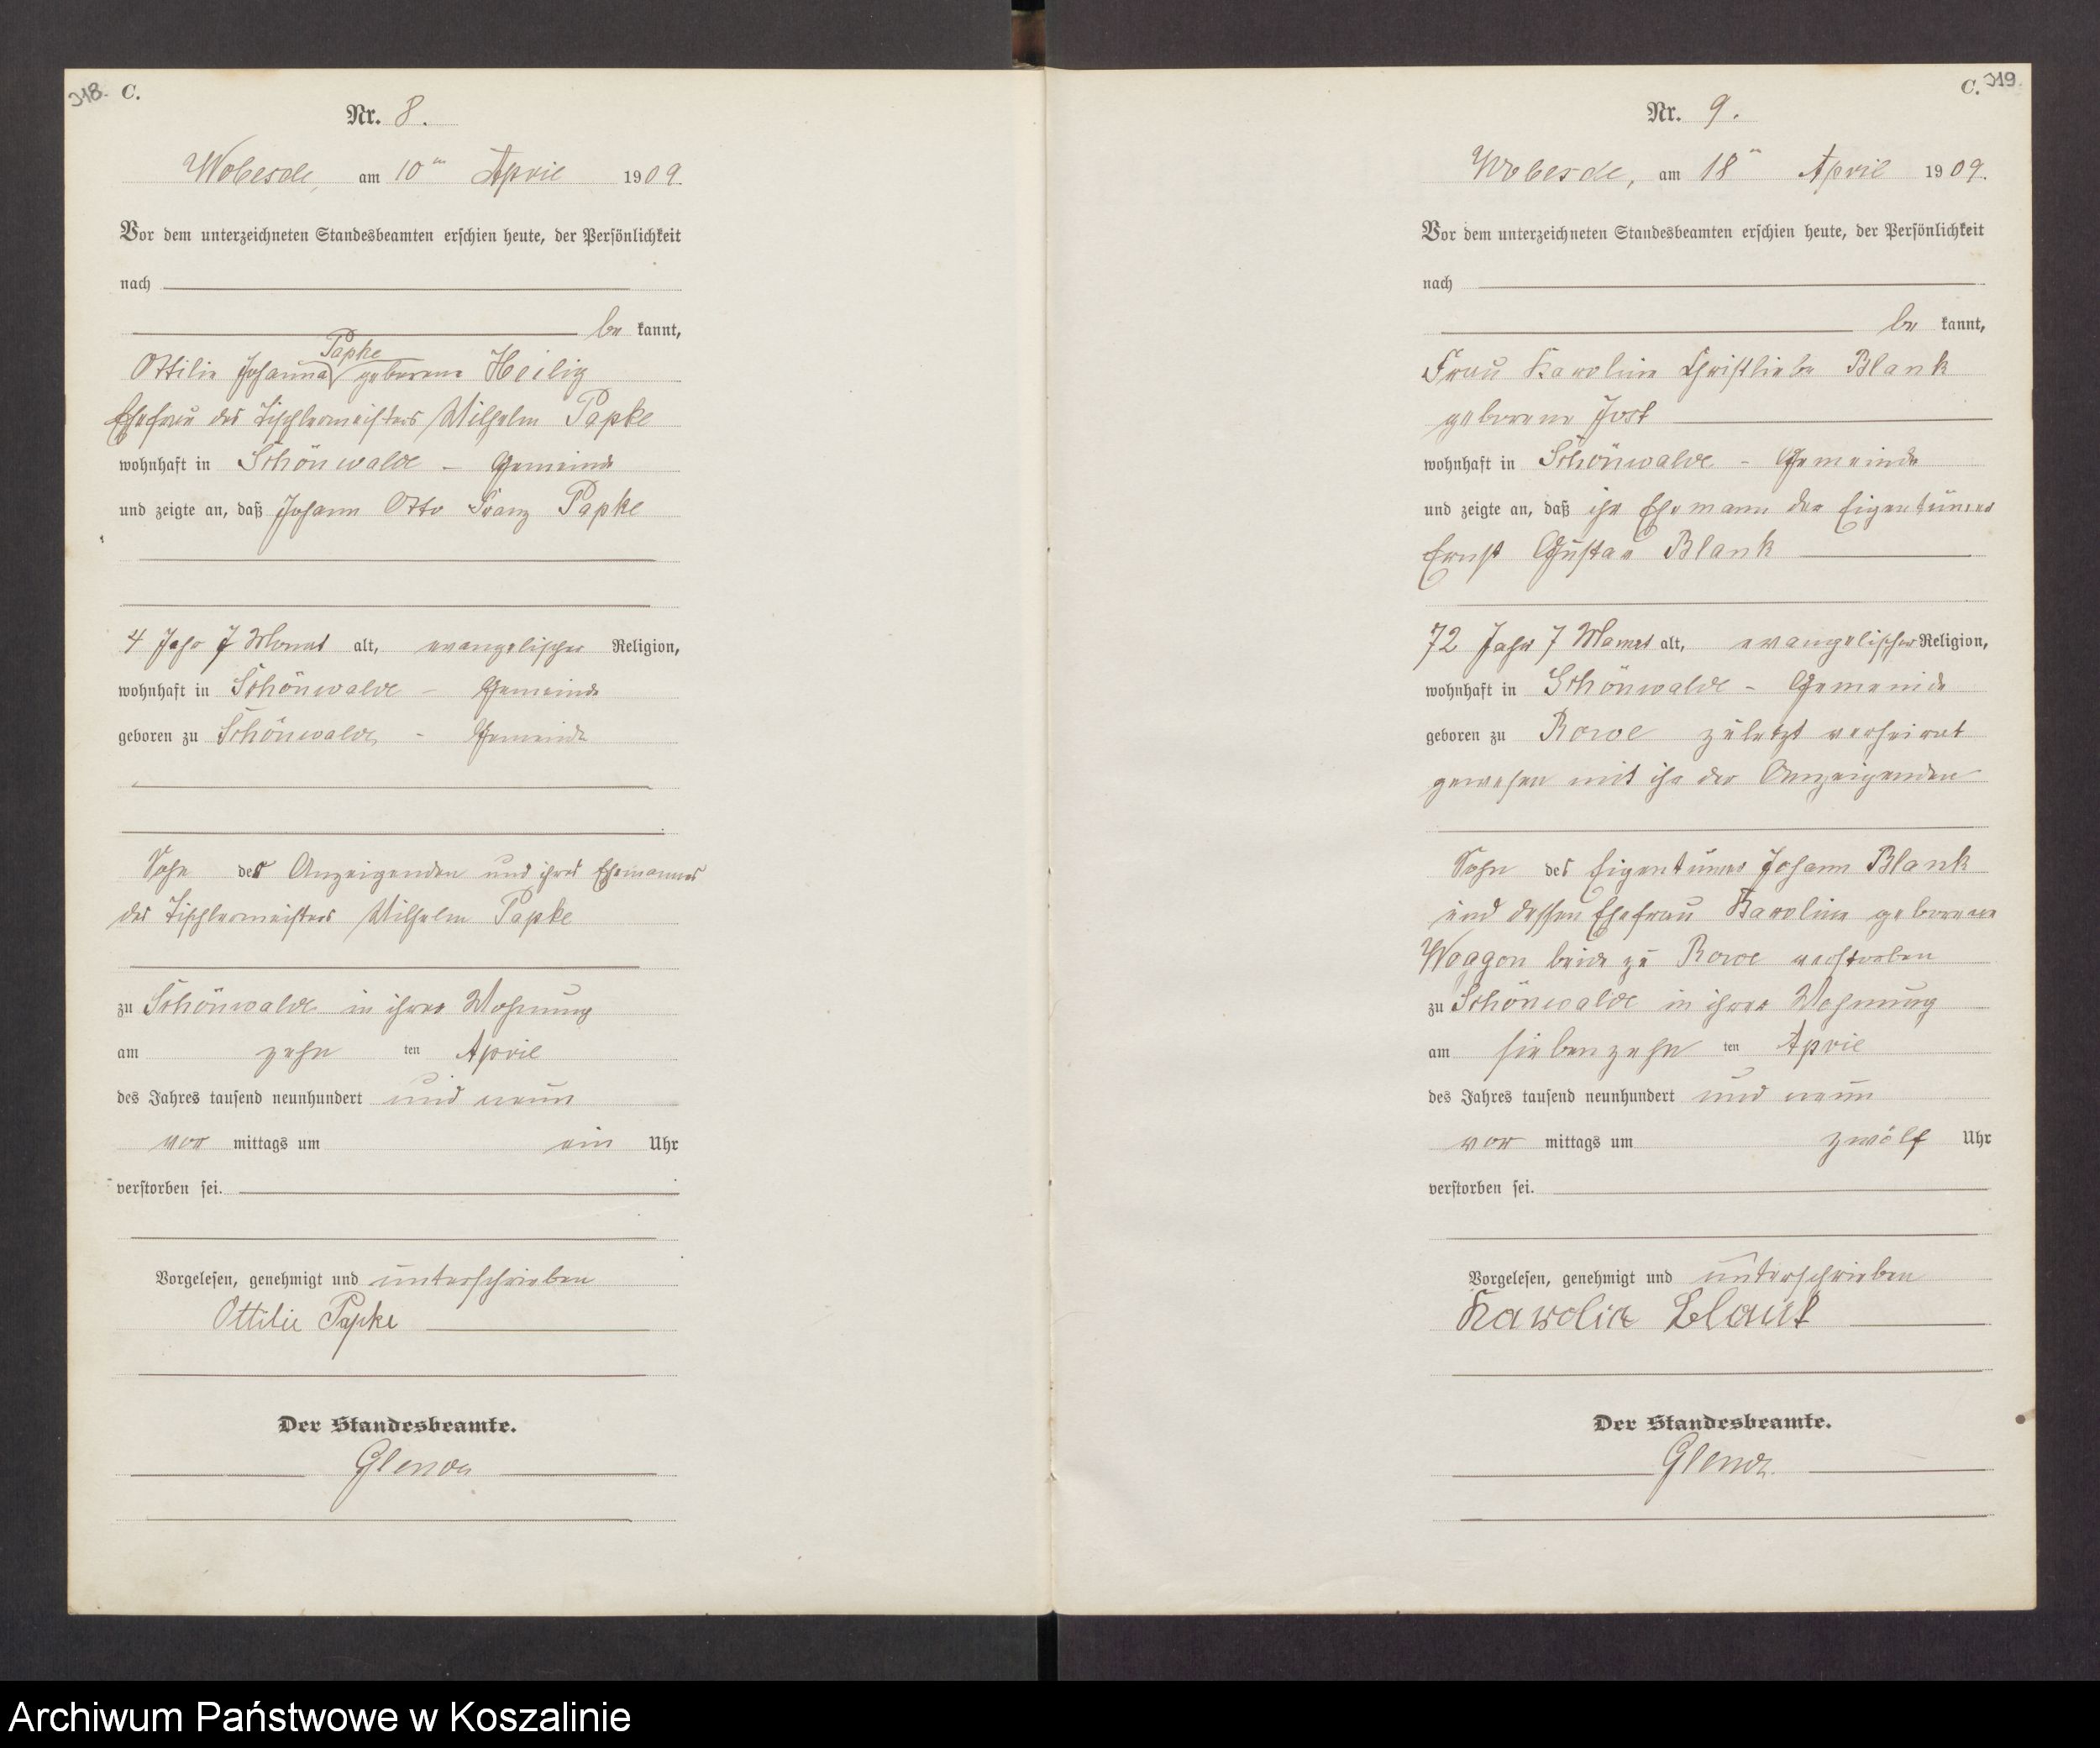 318. C.
Nr. 8.
Wobesde, am 10ten April 1909.
Vor dem unterzeichneten Standesbeamten erschien heute, der Persönlichkeit
nach
be kannt,
Papke
Ottilie Johanna geborene Heilig
Ehefrau des Tischlermeisters Wilhelm Papke
wohnhaft in Schönwalde - Gemeinde
und zeigte an, daß Johann Otto Franz Papke
4 Jahr 7 Monat alt, evangelischer Religion,
wohnhaft in Schönwalde - Gemeinde
geboren zu Schönwalde, - Gemeinde
Sohn der Anzeigenden und ihres Ehemannes
des Tischlermeisters Wilhelm Papke
zu Schönwalde in ihrer Wohnung
am zehn ten April
des Jahres tausend neunhundert und neun
vor mittags um ein Uhr
verstorben sei.
Vorgelesen, genehmigt und unterschrieben
Ottilie Papke
Der Standesbeamte.
C. 319.
Nr. 9.
Wobesde, am 18ten April 1909.
Vor dem unterzeichneten Standesbeamten erschien heute, der Persönlichkeit
nach
be kannt,
Frau Karoline Christliebe Blank
geborene Jost
wohnhaft in Schönwalde - Gemeinde
und zeigte an, daß ihr Ehemann der Eigentümer
Ernst Gustav Blank
72 Jahr 7 Monat alt, evangelischer Religion,
wohnhaft in Schönwalde - Gemeinde
geboren zu Rowe zuletzt verheirat
gewesen mit ihr der Anzeigenden
Sohn des Eigentümer Johann Blank
und dessen Ehefrau Karoline geborene
Woggon beide zu Rowe verstorben
zu Schönwalde in ihrer Wohnung
am siebenzehn ten April
des Jahres tausend neunhundert und neun
vor mittags um zwölf Uhr
verstorben sei.
Vorgelesen, genehmigt und unterschrieben
Karolie Blank
Der Standesbeamte.
Archiwum Państwowe w Koszalinie